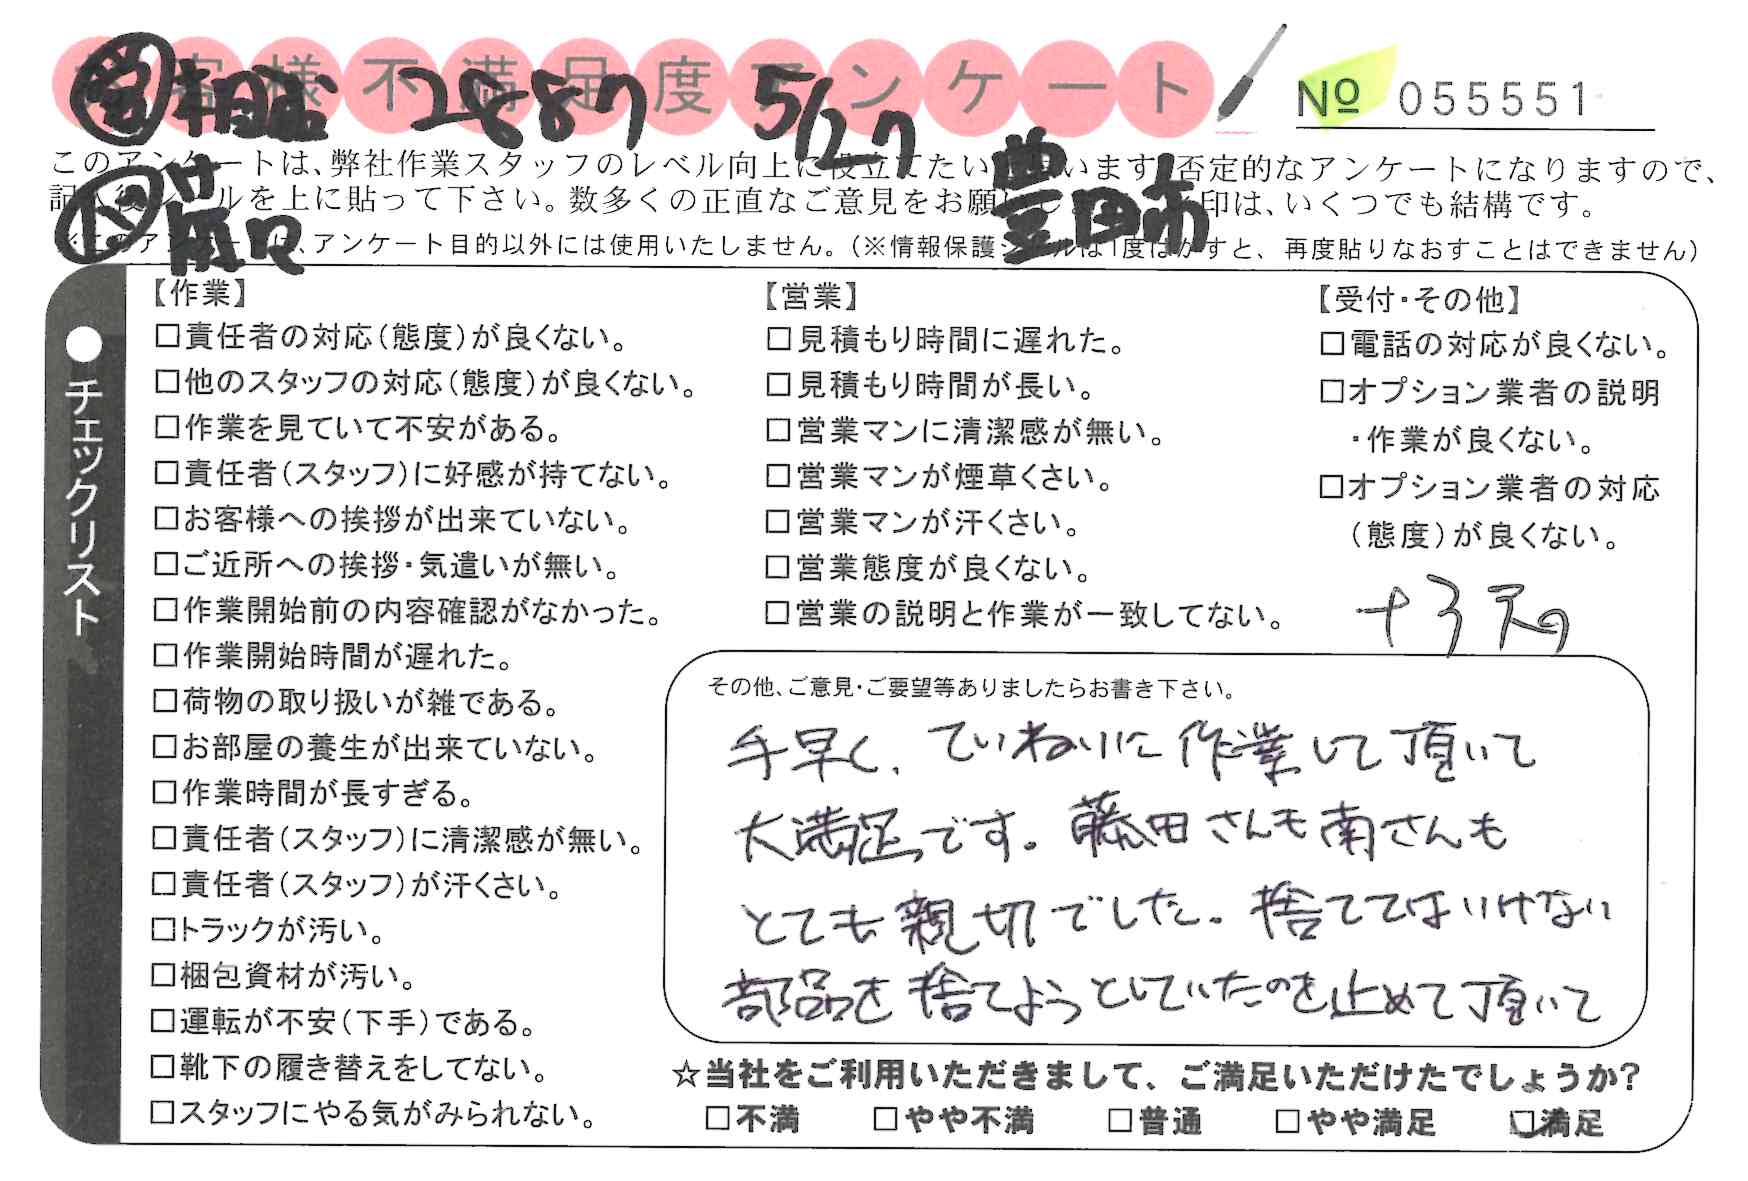 お客様不満足度アンケート
2887 5/27
№ 055551
豊田市
このアンケートは、弊社作業スタッフのレベル向上に役立てたいと思います。否定的なアンケートになりますので、
記入後シールを上に貼って下さい。数多くの正直なご意見をお願いします。 印は、いくつでも結構です。
※このアンケートは、アンケート目的以外には使用いたしません。(※情報保護シールは1度はがすと、再度貼りなおすことはできません)
●チェックリスト
【作業】
□責任者の対応(態度)が良くない。
□他のスタッフの対応(態度)が良くない。
□作業を見ていて不安がある。
□責任者(スタッフ)に好感が持てない。
□お客様への挨拶が出来ていない。
□ご近所への挨拶・気遣いが無い。
□作業開始前の内容確認がなかった。
□作業開始時間が遅れた。
□荷物の取り扱いが雑である。
□お部屋の養生が出来ていない。
□作業時間が長すぎる。
□責任者(スタッフ)に清潔感が無い。
□責任者(スタッフ)が汗くさい。
□トラックが汚い。
□梱包資材が汚い。
□運転が不安(下手)である。
□靴下の履き替えをしてない。
□スタッフにやる気がみられない。
【営業】
□見積もり時間に遅れた。
□見積もり時間が長い。
□営業マンに清潔感が無い。
□営業マンが煙草くさい。
□営業マンが汗くさい。
□営業態度が良くない。
□営業の説明と作業が一致してない。
【受付・その他】
□電話の対応が良くない。
□オプション業者の説明
・作業が良くない。
□オプション業者の対応
(態度)が良くない。
その他、ご意見・ご要望等ありましたらお書き下さい。
手早く、ていねいに作業して頂いて
大満足です。藤田さんも南さんも
とても親切でした。捨ててはいけない
部品を捨てようとしていたのを止めて頂いて
☆当社をご利用いただきまして、ご満足いただけたでしょうか?
□不満 □やや不満 □普通 □やや満足 ☑満足